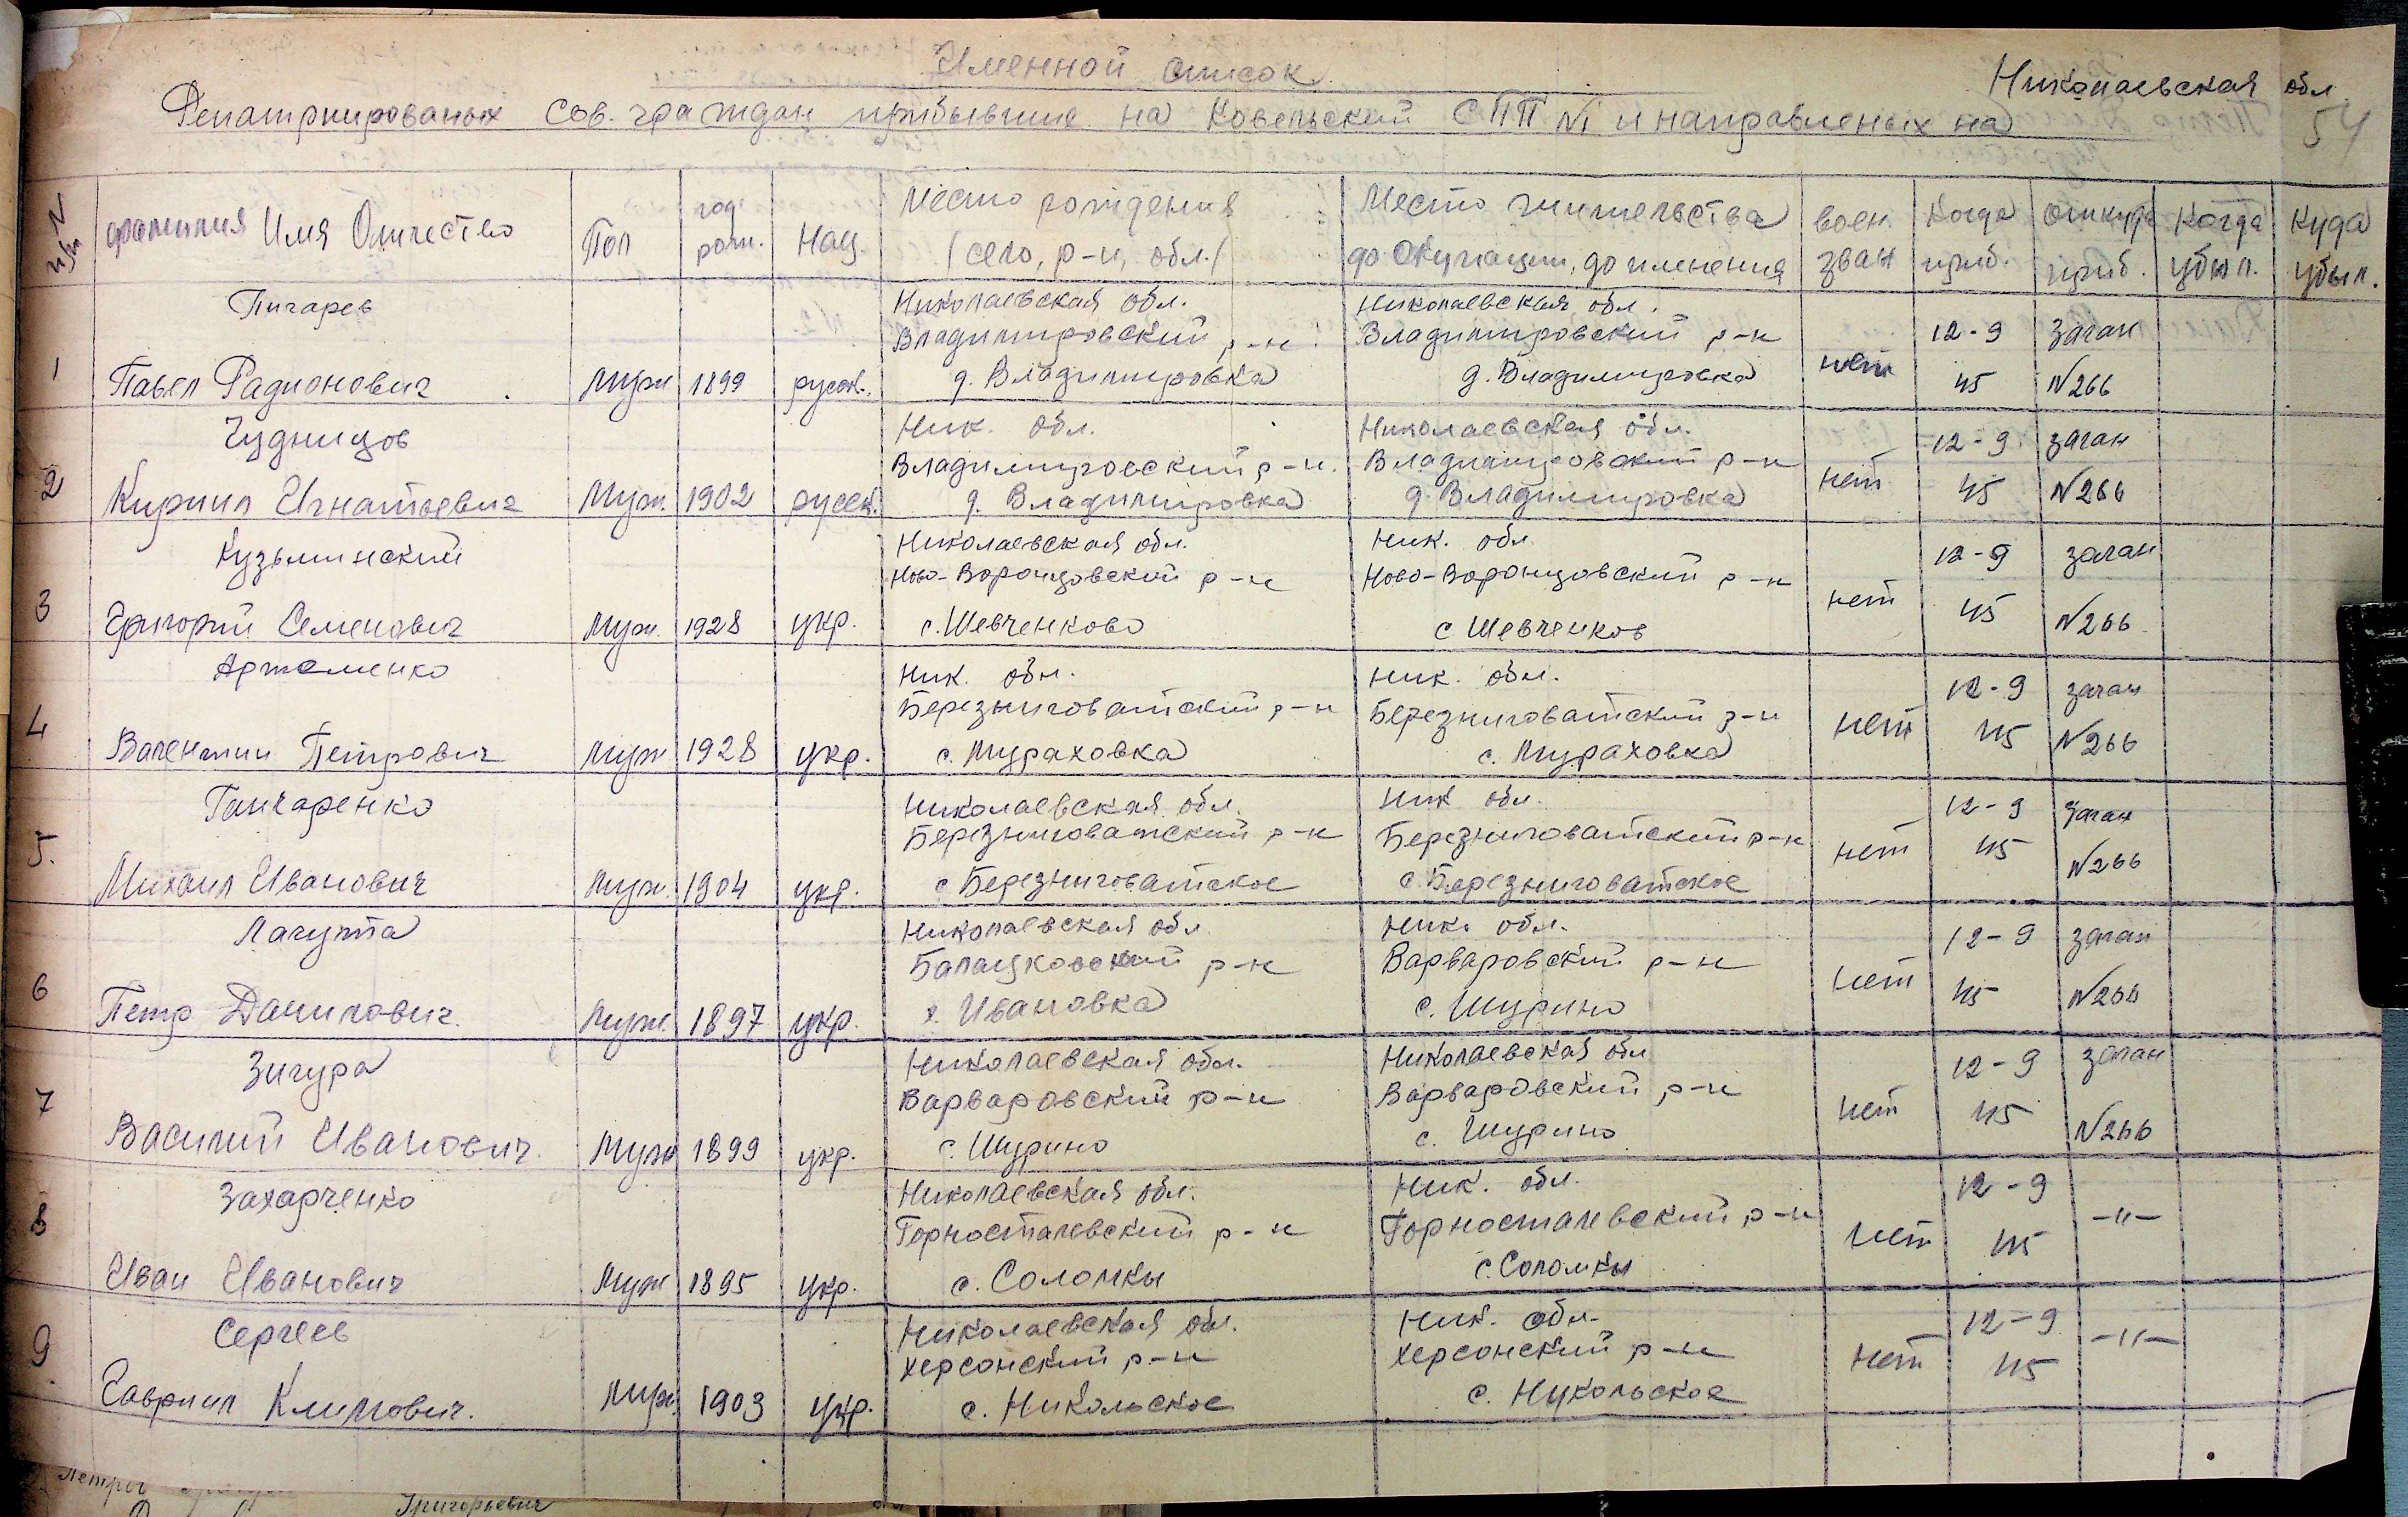 Именной список
Николаевская обл
Репатриированых Сов. граждан прибывшие на Ковельский СПП №1 и направленых на
54
№ п/п фамилия Имя Отчество Пол год рожд. Нац. Место рождения (село, р-н, обл.) Место жительства до Окупации, до пленения воен. зван Когда приб. откуда приб. Когда убыл. Куда убыл.
Пичарев Николаевская обл. Николаевская обл.
Владимировский р-н Владимировский р-н 12-9 Заган
1 Павел Радионович Муж 1899 русск. д. Владимировка д. Владимировка нет 45 №266
Чудницов Ник. обл. Николаевская обл. 12-9 заган
Владимировский р-н. Владимировский р-н
2 Кирилл Игнатьевич Муж. 1902 русск. д. Владимировка д. Владимировка нет 45 №266
Кузьминский Николаевская обл. Ник. обл 12-9 заган
Ново-Воронцовский р-н Ново-Воронцовский р-н
3 Григорий Семенович Муж. 1928 укр. с. Шевченково с Шевченков нет 45 №266
Артеменко Ник. обл. Ник. обл. 12-9 заган
Березниговатский р-н Березниговатский р-н
4 Валентин Петрович Муж 1928 укр. с. Мураховка с. Мураховка нет 45 №266
Ганчаренко Николаевская обл. Ник обл. 12-9 Заган
Березниговатский р-н Березниговатский р-н
5. Михаил Иванович Муж. 1904 укр. с Березниговатское с. Березниговатское нет 45 №266
Лагута Николаевская обл Ник. обл. 12-9 заган
Балацковский р-н Варваровский р-н
6 Петр Данилович. Муж. 1897 укр. с. Ивановка с. Шурино нет 45 №266
Зигура Николаевская обл. Николаевская обл 12-9 заган
Варваровский р-н Варваровский р-н
7 Василий Иванович. Муж 1899 укр. с. Шурино с. Шурино нет 45 №266
Захарченко Николаевская обл. Ник. обл. 12-9
Горностаевский р-н Горностаевский р-н -"-
8 Иван Иванович Муж 1895 укр. с. Соломкы с. Соломкы нет 45
Сергеев Николаевская обл. Ник. обл. 12-9
херсонский р-н херсонский р-н -"-
9. Гаврил Климович. Муж. 1903 укр. с. Никольское с. Никольское нет 45
Григорьевич